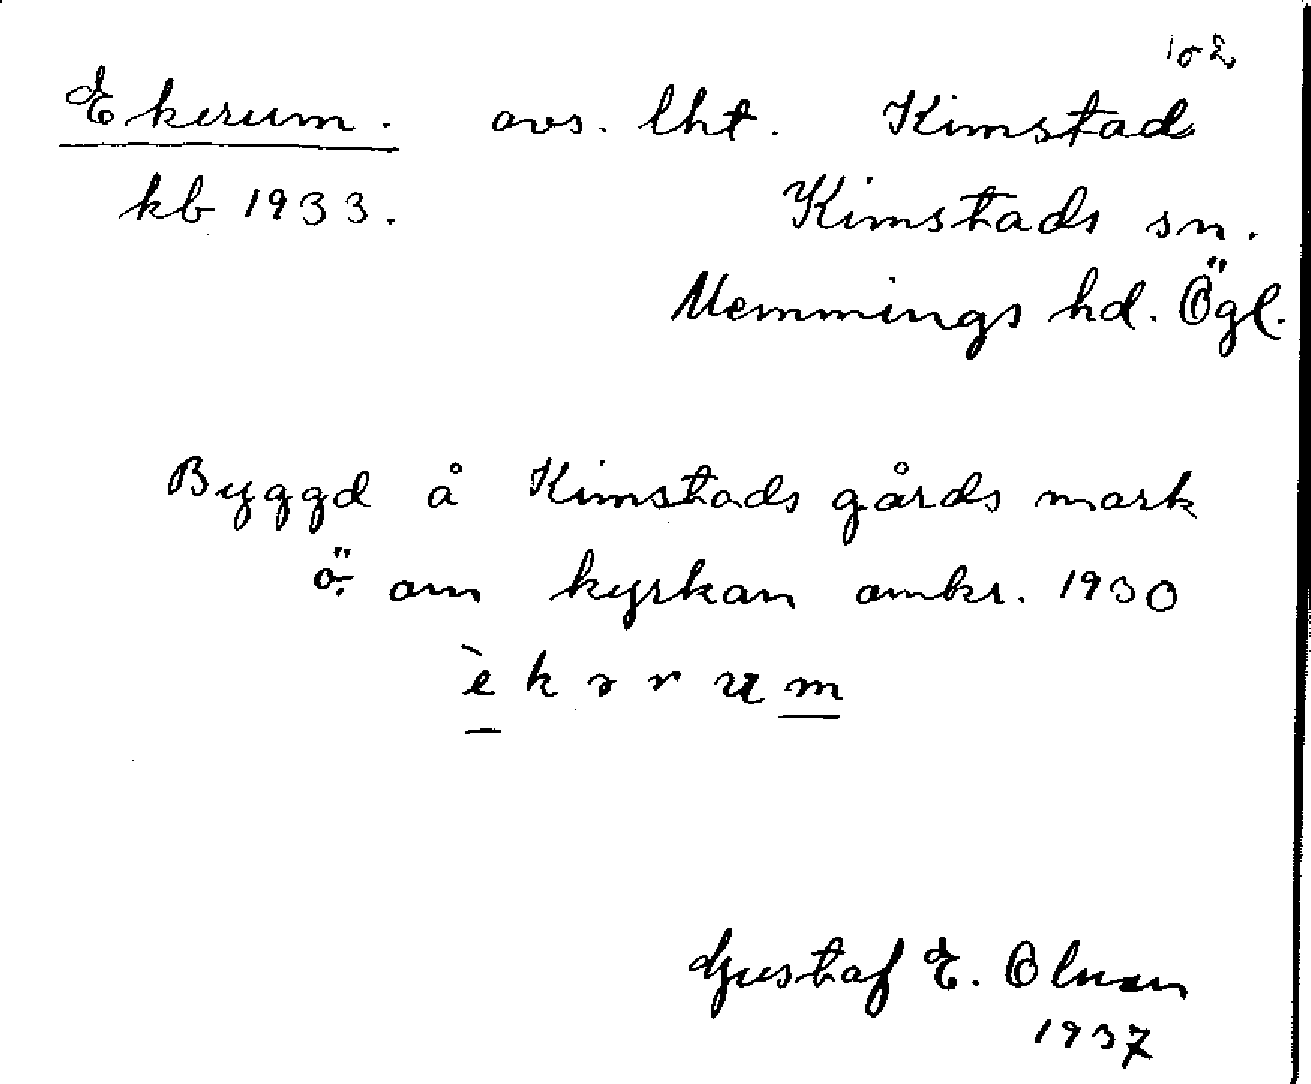 102
Ekerum. avs. lht. Kimstad
kb 1933. Kimstads sn.
Memmings hd. Ögl.
Byggd å Kimstads gårds mark
ö. om kyrkan omkr. 1930
Gustaf E. Olsson
1937